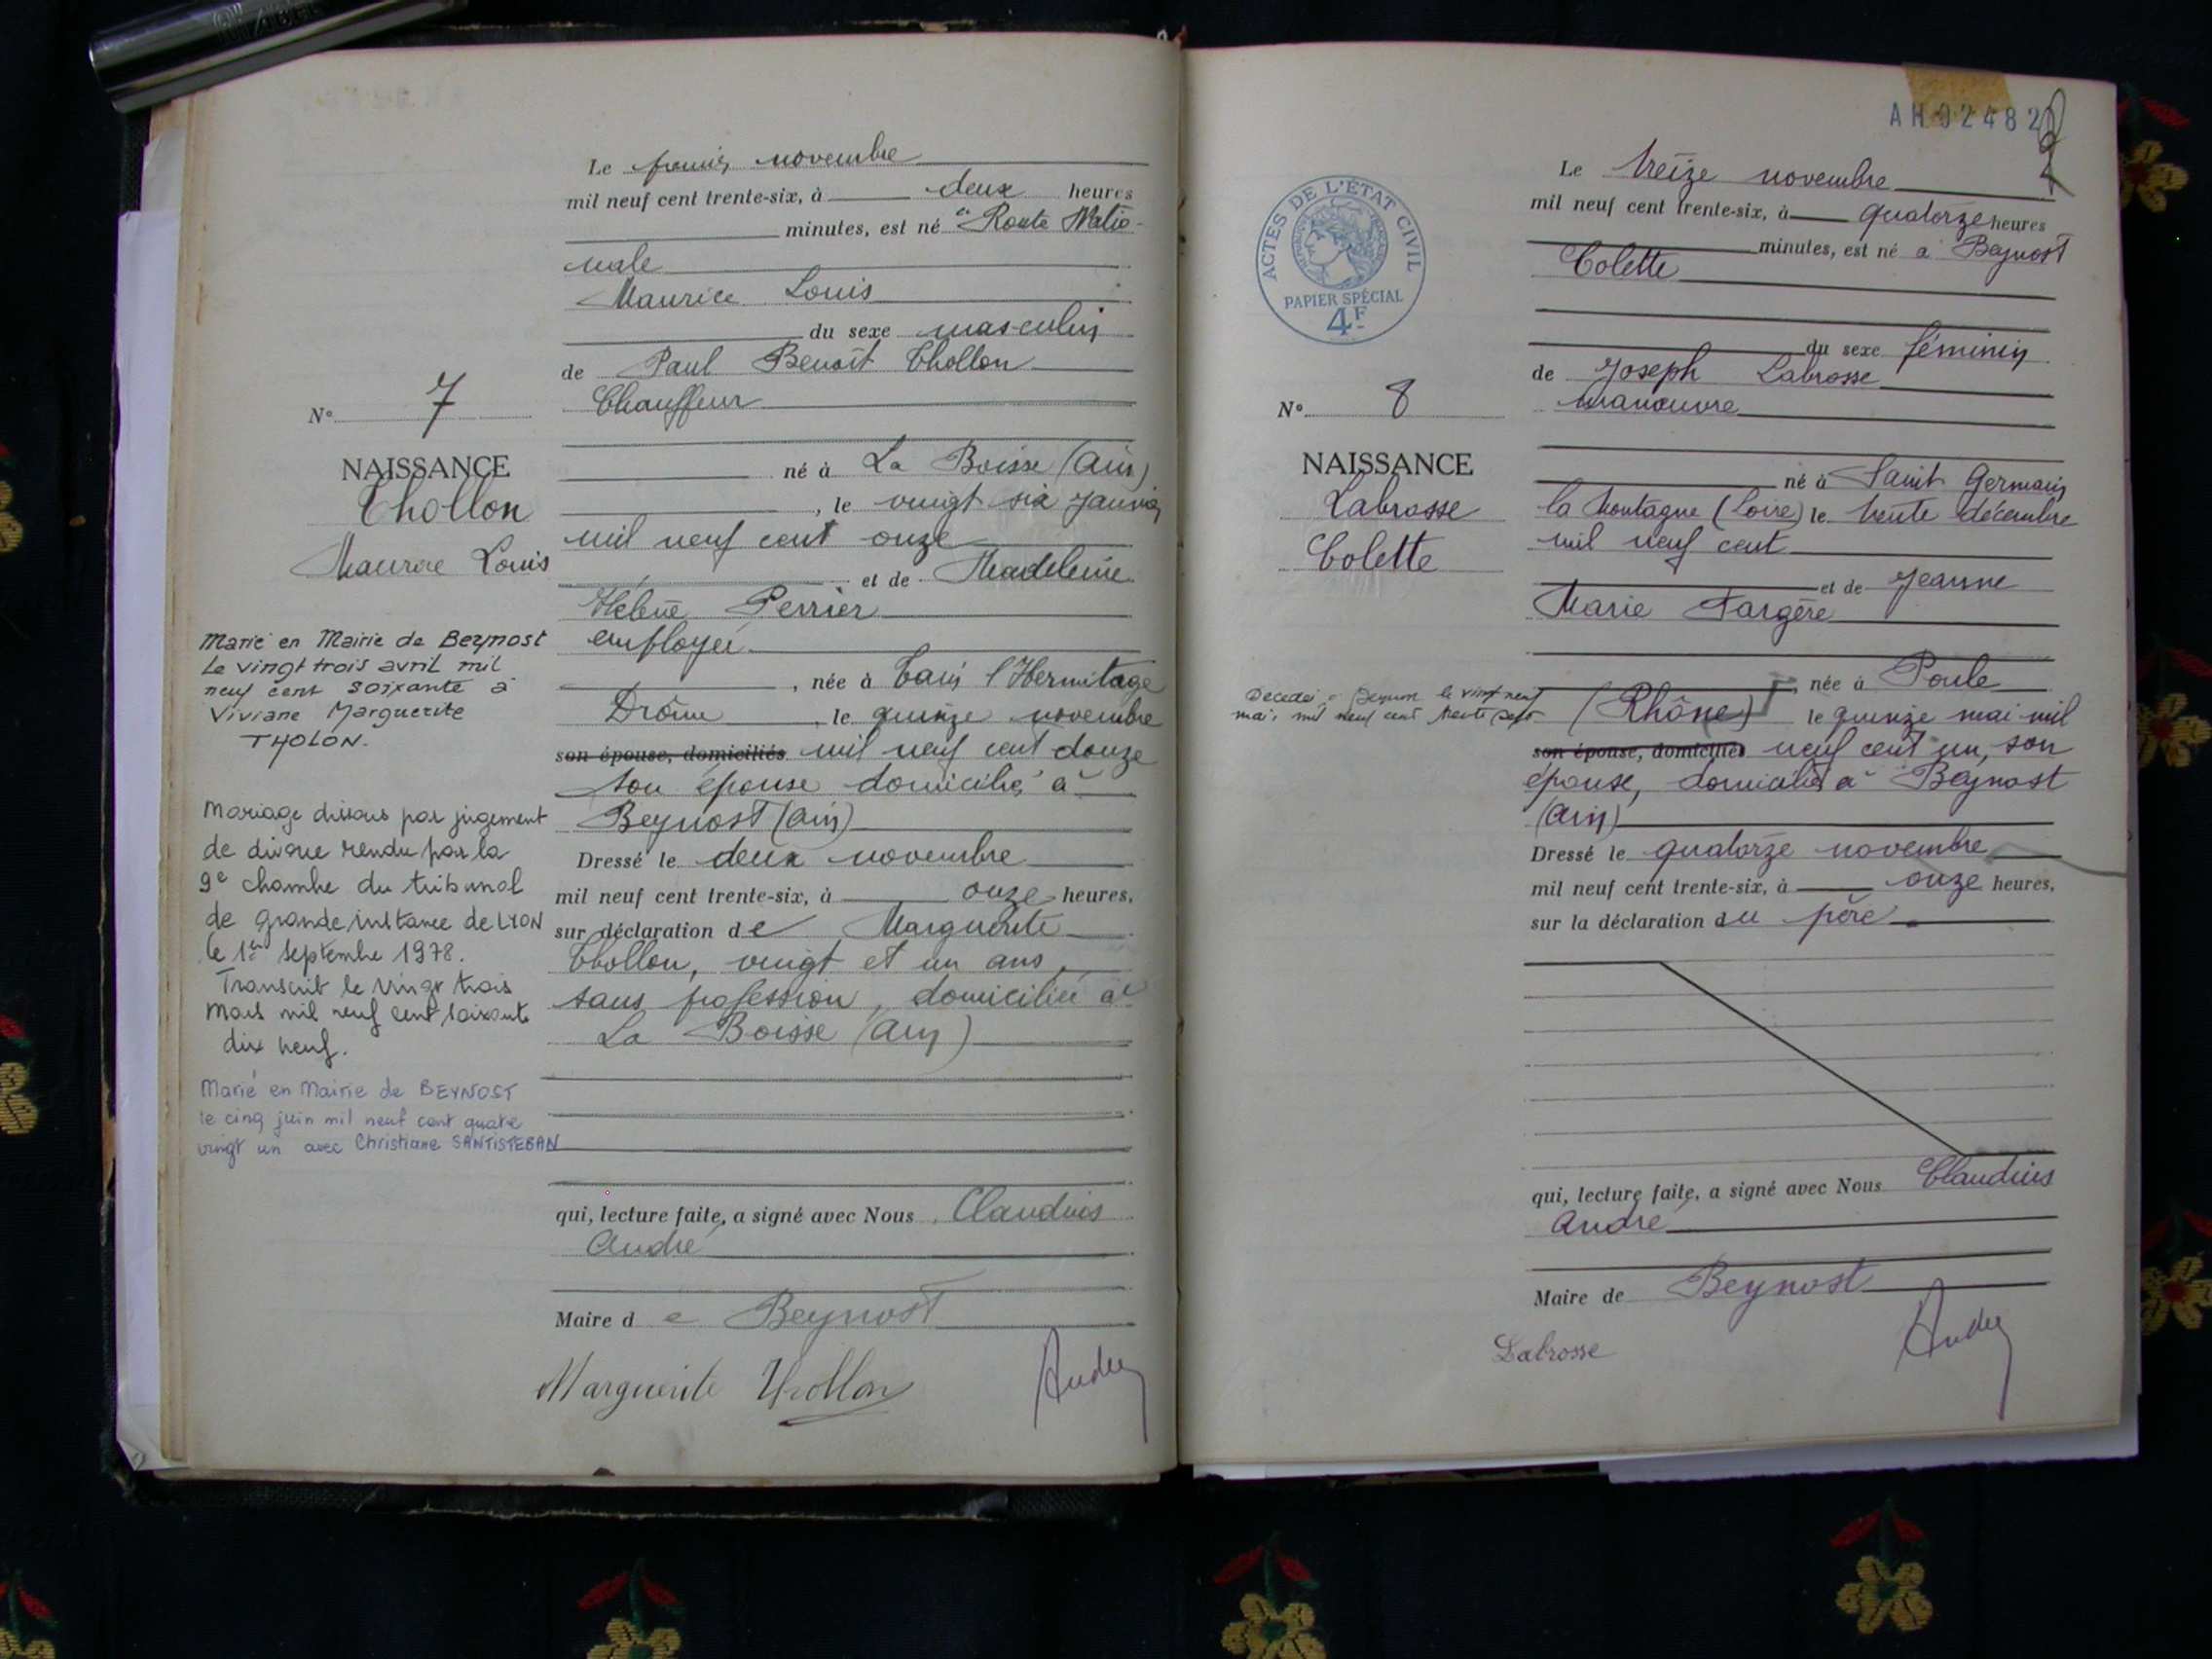 Le premier novembre
mil neuf cent trente-six, à deux heures
minutes, est né Route Natio-
nale
Maurice Louis
du sexe masculin
de Paul Benoît Thollon
Chauffeur
né à La Boisse (Ain)
, le vingt six Janvier
mil neuf cent onze
et de Madeleine
Hélène Perrier
employée
, née à Tain l'Hermitage
Drôme , le quinze novembre
son épouse, domiciliés mil neuf cent douze
son épouse domiciliés à
Beynost (Ain)
Dressé le deux novembre
mil neuf cent trente-six, à onze heures,
sur déclaration de Marguerite
Thollon, vingt et un ans,
sans profession, domiciliée à
La Boisse (Ain)
qui, lecture faite, a signé avec Nous Claudius
André
Maire de Beynost
Marguerite Thollon
André
N° 7
NAISSANCE
Thollon
Maurice Louis
Marié en Mairie de Beynost
Le vingt trois avril mil
neuf cent soixante à
Viviane Marguerite
THOLON.
Mariage dissous par jugement
de divorce rendu par la
9e chambre du tribunal
de grande instance de LYON
le 1er septembre 1978.
Transcrit le vingt trois
Mars mil neuf cent soixante
dix neuf.
Marié en Mairie de BEYNOST
le cinq juin mil neuf cent quatre
vingt un avec Christiane SANTISTEBAN
AH 02482
Le treize novembre
mil neuf cent trente-six, à quatorze heures
minutes, est né à Beynost
Colette
du sexe féminin
de Joseph Labrosse
manœuvre
né à Saint Germain
la Montagne (Loire) le trente décembre
mil neuf cent
et de Jeanne
Marie Fargère
, née à Poule
(Rhône) le quinze mai mil
son épouse, domiciliés neuf cent un, son
épouse, domiciliés à Beynost
(Ain)
Dressé le quatorze novembre
mil neuf cent trente-six, à onze heures,
sur la déclaration du père
qui, lecture faite, a signé avec Nous Claudius
André
Maire de Beynost
Labrosse
André
ACTES DE L'ÉTAT CIVIL
RÉPUBLIQUE FRANÇAISE
PAPIER SPÉCIAL
4F
N° 8
NAISSANCE
Labrosse
Colette
Décédée à le vingt neuf
mai mil neuf cent trente sept